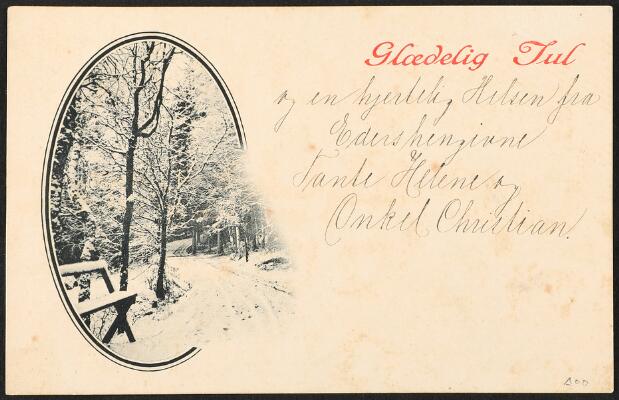 Glædelig Jul
og en hjertelig Hilsen fra
Eders hengivne
Tante Helene og
Onkel Christian.